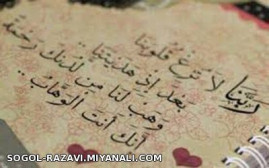 ربنا لا تزغ قلوبنا
بعد إذ هديتنا
وهب لنا من لدنك رحمة
انك أنت الوهاب..
SOGOL-RAZAVI.MIYANALI.COM